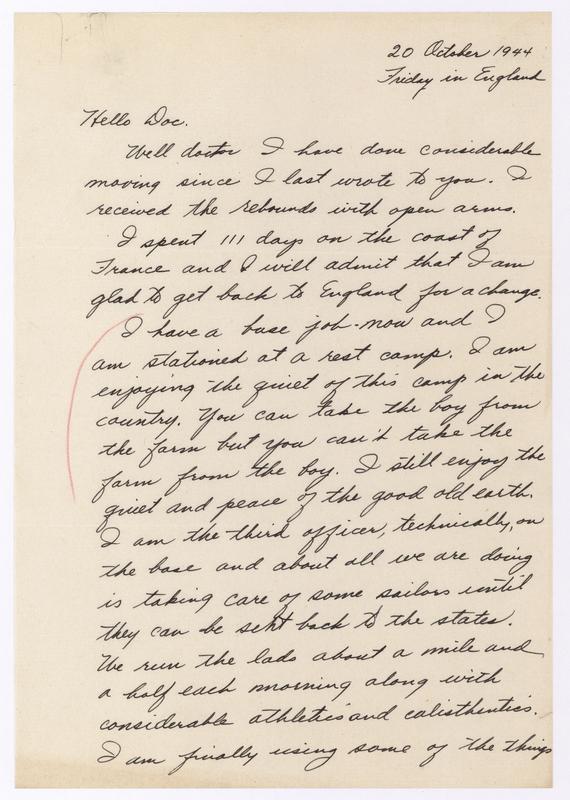 20 October 1944
Friday in England
Hello Doc.
Well doctor I have done considerable
moving since I last wrote to you. I
received the rebounds with open arms.
I spent 111 days on the coast of
France and I will admit that I am
glad to get back to England for a change.
I have a base job now and I
am stationed at a rest camp. I am
enjoying the quiet of this camp in the
country. You can take the boy from
the farm but you can't take the
farm from the boy. I still enjoy the
quiet and peace of the good old earth.
I am the third officer, technically, on
the base and about all we are doing
is taking care of some sailors until
they can be sent back to the states.
We run the lads about a mile and
a half each morning along with
considerable athletics and calisthentics.
I am finally using some of the things